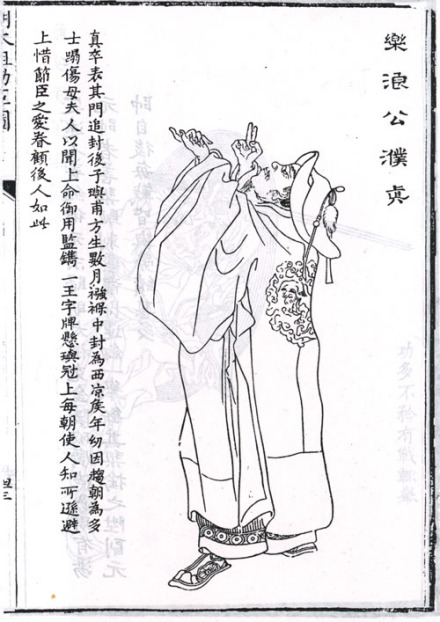 樂浪公濮真
真卒表其門追封後子璵甫方生數月襁褓中封為西涼矦年幼因趨朝為多
士蹋傷母夫人以聞上命御用監鐫一王字牌懸璵冠上每朝使人知所遜避
上惜節臣之愛眷顧後人如此